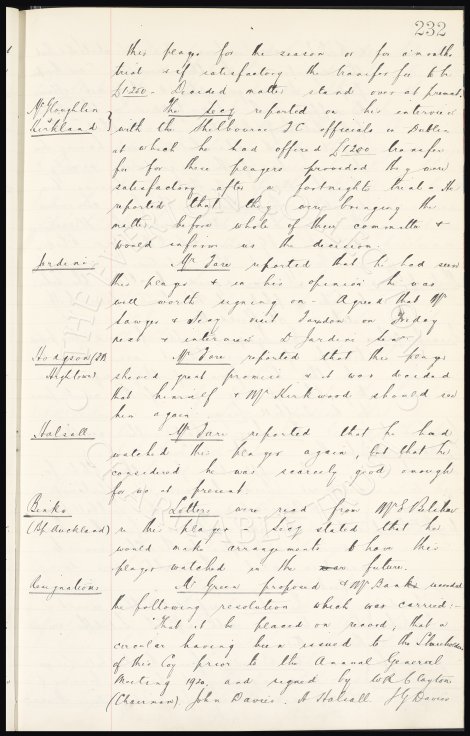 232
this player for the season or for a month's
trial & if satisfactory the transfer fee to be
£1250 - Decided matter stand over at present
McGloughlin & Kirkland } The Secy reported on his interview
with the Shelbourne F.C officials in Dublin
at which he had offered £1200 transfer
fee for these players provided they were
satisfactory after a fortnights trial. He
reported that they were bringing the
matter before whole of their committee &
would inform us the decision.
Jardine Mr Fare reported that he had seen
this player & in his opinion he was
well worth signing on - Agreed that Mr
Sawyer & Secy visit on Friday
next & interview D Jardine
Hodgson (SB Hightown) Mr Fare reported that this player
showed great promise & it was decided
that himself & Mr Kirkwood should see
him again
Halsall Mr Fare reported that he had
watched this player again, but that he
considered he was scarcely good enough
for us at present
Binks (Bp. Auckland) Letters were read from Mr S
re this player. Secy stated that he
would make arrangements to have this
player watched in the future.
Resignations Mr Green proposed & Mr Banks seconded
the following resolution which was carried :-
"That it be placed on record, that a
circular having been issued to the Shareholders
of this Coy prior to the Annual General
Meeting 1920, and signed by W R Clayton
(Chairman), John Davies, A Halsall, J G Davies